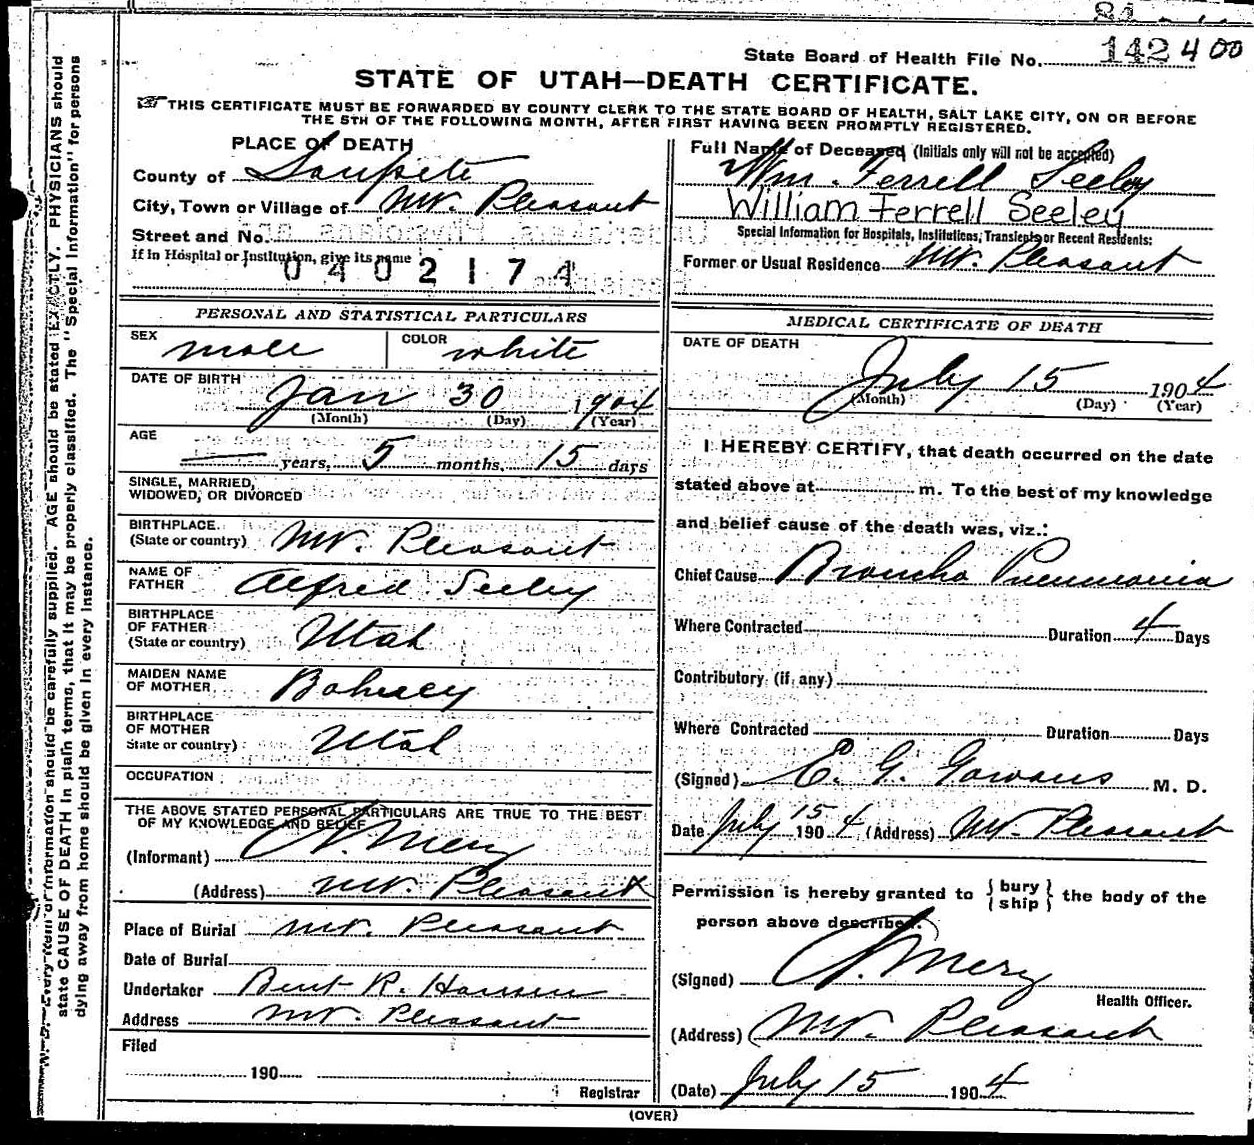 State Board of Health File No. 142400
STATE OF UTAH—DEATH CERTIFICATE.
THIS CERTIFICATE MUST BE FORWARDED BY COUNTY CLERK TO THE STATE BOARD OF HEALTH, SALT LAKE CITY, ON OR BEFORE
THE 5TH OF THE FOLLOWING MONTH, AFTER FIRST HAVING BEEN PROMPTLY REGISTERED.
PLACE OF DEATH
County of Sanpete
City, Town or Village of Mt. Pleasant
Street and No.
If in Hospital or Institution, give its name
0402174
Full Name of Deceased (Initials only will not be accepted)
Wm. Ferrell Seeley
William Ferrell Seeley
Special Information for Hospitals, Institutions, Transients or Recent Residents:
Former or Usual Residence Mt. Pleasant
PERSONAL AND STATISTICAL PARTICULARS
SEX male COLOR white
DATE OF BIRTH Jan 30 1904
(Month) (Day) (Year)
AGE — years, 5 months, 15 days
SINGLE, MARRIED,
WIDOWED, OR DIVORCED
BIRTHPLACE
(State or country) Mt. Pleasant
NAME OF
FATHER Alfred Seeley
BIRTHPLACE
OF FATHER
(State or country) Utah
MAIDEN NAME
OF MOTHER
BIRTHPLACE
OF MOTHER
State or country) Utah
OCCUPATION
THE ABOVE STATED PERSONAL PARTICULARS ARE TRUE TO THE BEST
OF MY KNOWLEDGE AND BELIEF
(Informant)
(Address) Mt. Pleasant
Place of Burial Mt. Pleasant
Date of Burial
Undertaker Bent R. Hansen
Address Mt. Pleasant
Filed
190
Registrar
MEDICAL CERTIFICATE OF DEATH
DATE OF DEATH
July 15 1904
(Month) (Day) (Year)
I HEREBY CERTIFY, that death occurred on the date
stated above at m. To the best of my knowledge
and belief cause of the death was, viz.:
Chief Cause Broncho Pneumonia
Where Contracted Duration 4 Days
Contributory (if any)
Where Contracted Duration Days
(Signed) E. G. Gowans M. D.
Date July 15 1904 (Address) Mt. Pleasant
Permission is hereby granted to { bury / ship } the body of the
person above described.
(Signed)
Health Officer.
(Address) Mt. Pleasant
(Date) July 15 1904
(OVER)
N. B.—Every item of information should be carefully supplied. AGE should be stated EXACTLY. PHYSICIANS should
state CAUSE OF DEATH in plain terms, that it may be properly classified. The "Special Information" for persons
dying away from home should be given in every instance.